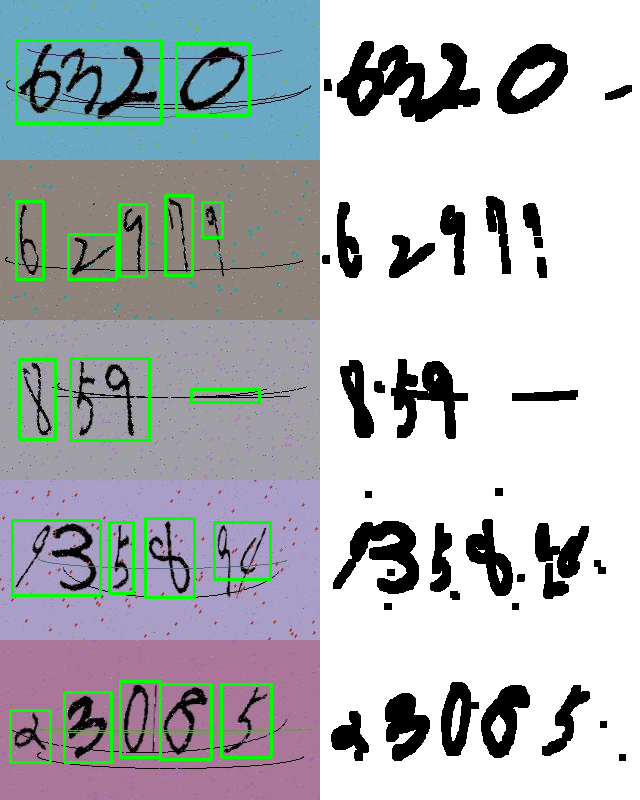 6320 6320
62979 62979
859 — 859 —
9358 9358
23085 23085